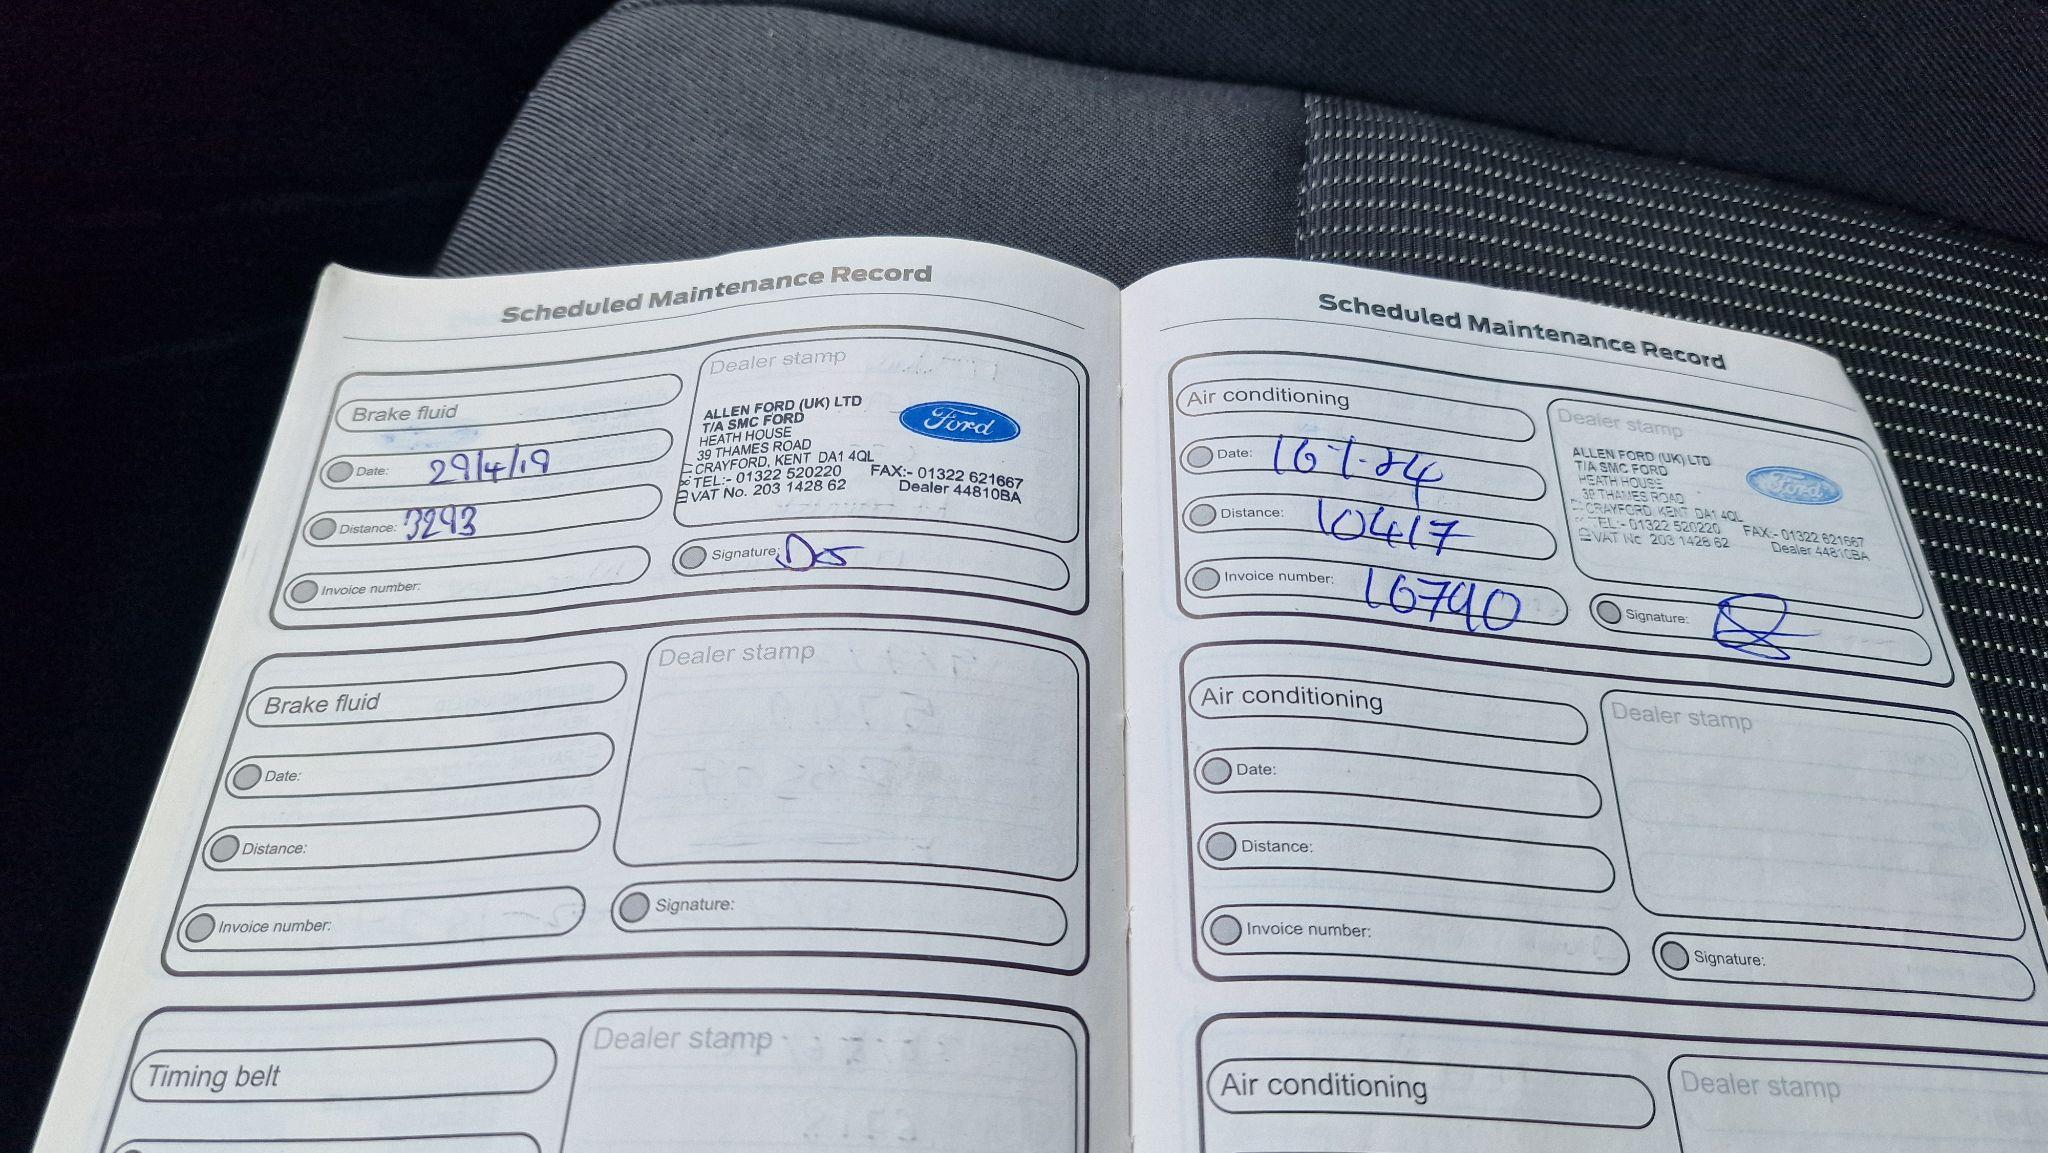 Scheduled Maintenance Record
Brake fluid
Date: 29/4/19
Distance: 3293
Invoice number:
Dealer stamp
ALLEN FORD (UK) LTD
T/A SMC FORD
HEATH HOUSE
39 THAMES ROAD
CRAYFORD, KENT DA1 4QL
TEL:- 01322 520220 FAX:- 01322 621667
VAT No. 203 1428 62 Dealer 44810BA
Ford
Signature:
Brake fluid
Date:
Distance:
Invoice number:
Dealer stamp
Signature:
Timing belt
Dealer stamp
Scheduled Maintenance Record
Air conditioning
Date: 16-7-24
Distance: 10417
Invoice number: 16790
Dealer stamp
ALLEN FORD (UK) LTD
T/A SMC FORD
HEATH HOUSE
39 THAMES ROAD
CRAYFORD, KENT DA1 4QL
TEL:- 01322 520220 FAX:- 01322 621667
VAT No 203 1428 62 Dealer 44810BA
Ford
Signature:
Air conditioning
Date:
Distance:
Invoice number:
Dealer stamp
Signature:
Air conditioning
Dealer stamp